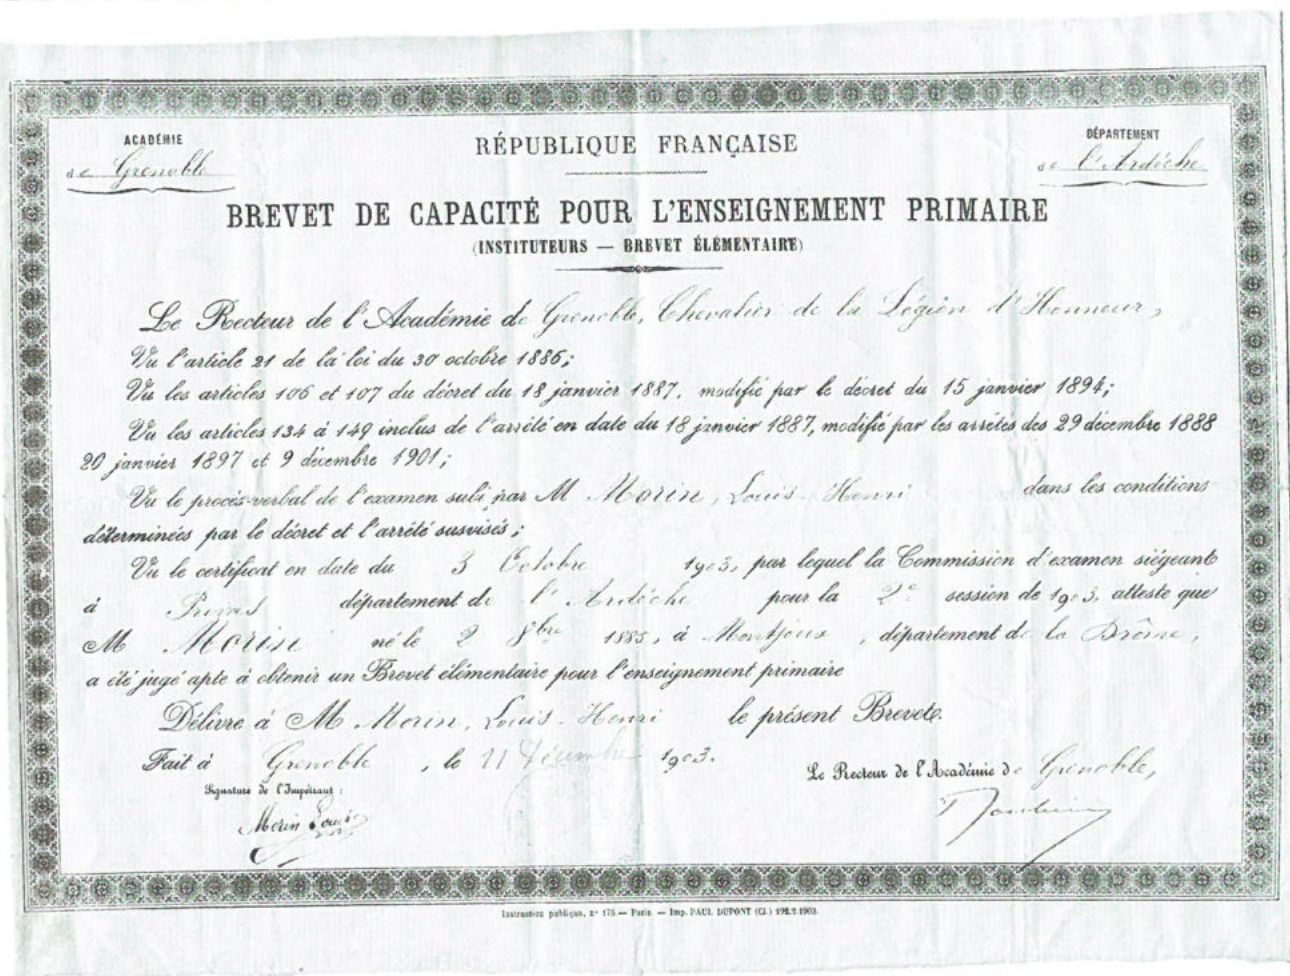 ACADÉMIE
de Grenoble
RÉPUBLIQUE FRANÇAISE
DÉPARTEMENT
de l'Ardèche
BREVET DE CAPACITÉ POUR L'ENSEIGNEMENT PRIMAIRE
(INSTITUTEURS — BREVET ÉLÉMENTAIRE)
Le Recteur de l'Académie de Grenoble, Chevalier de la Légion d'Honneur,
Vu l'article 21 de la loi du 30 octobre 1886;
Vu les articles 106 et 107 du décret du 18 janvier 1887, modifié par le décret du 15 janvier 1894;
Vu les articles 134 à 149 inclus de l'arrêté en date du 18 janvier 1887, modifié par les arrêtés des 29 décembre 1888
20 janvier 1897 et 9 décembre 1901;
Vu le procès-verbal de l'examen subi par M Morin, Louis-Henri dans les conditions
déterminées par le décret et l'arrêté susvisés;
Vu le certificat en date du 3 Octobre 1903, par lequel la Commission d'examen siégeant
à Privas département de l'Ardèche pour la 2e session de 1903, atteste que
M Morin né le 2 8bre 1885, à Montjoux, département de la Drôme,
a été jugé apte à obtenir un Brevet élémentaire pour l'enseignement primaire
Délivre à M Morin, Louis-Henri le présent Brevet.
Fait à Grenoble, le 11 Décembre 1903.
Signature de l'Impétrant :
Morin Louis
Le Recteur de l'Académie de Grenoble,
Instruction publique, n° 175 — Paris. — Imp. PAUL DUPONT (Cl.)